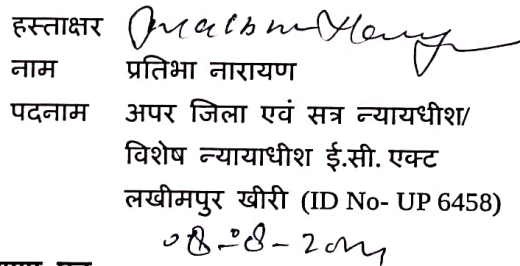 हस्ताक्षर
नाम प्रतिभा नारायण
पदनाम अपर जिला एवं सत्र न्यायधीश/
विशेष न्यायाधीश ई.सी. एक्ट
लखीमपुर खीरी (ID No- UP 6458)